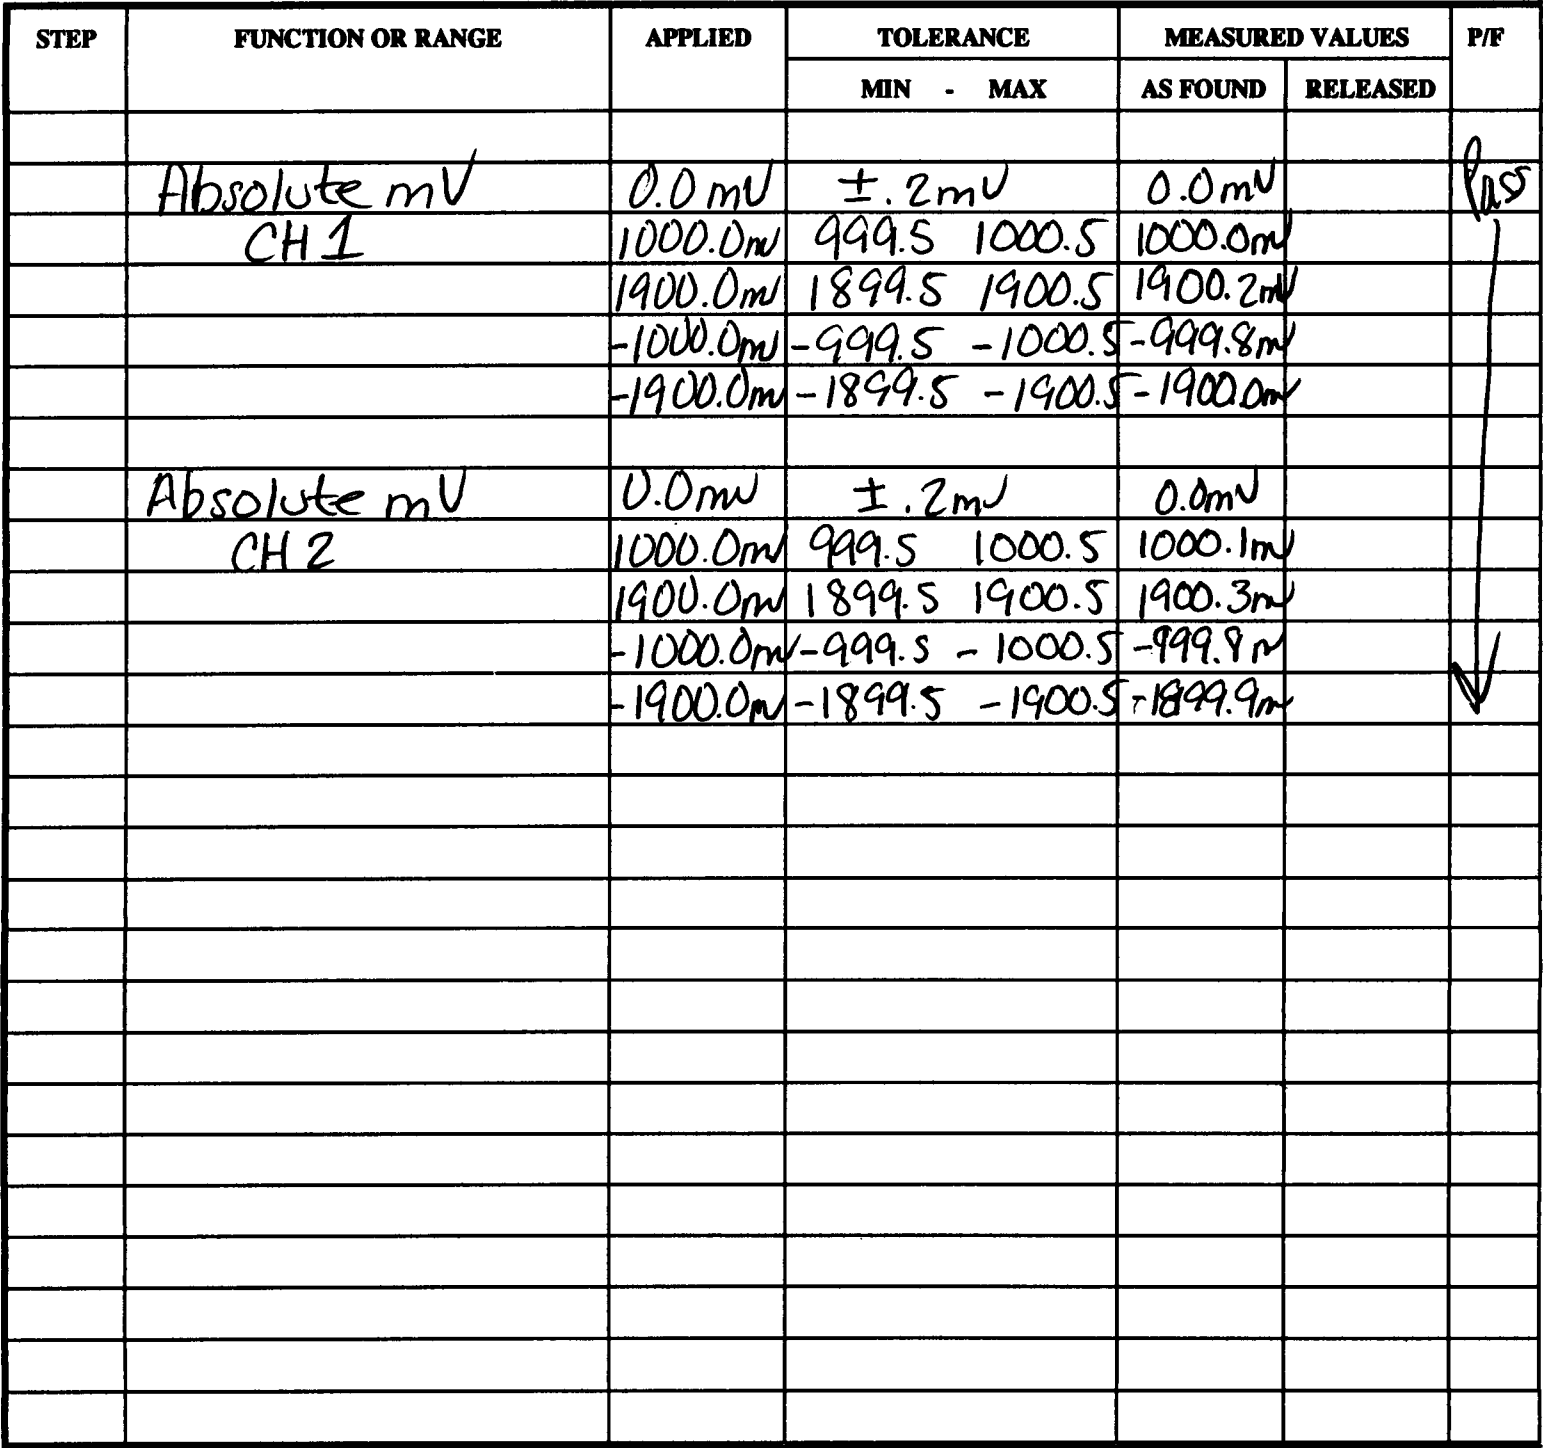 STEP FUNCTION OR RANGE APPLIED TOLERANCE MEASURED VALUES P/F
MIN - MAX AS FOUND RELEASED
Absolute mV 0.0mV ±.2mV 0.0mV Pass
CH 1 1000.0mV 999.5 1000.5 1000.0mV
1900.0mV 1899.5 1900.5 1900.2mV
-1000.0mV -999.5 -1000.5 -999.8mV
-1900.0mV -1899.5 -1900.5 -1900.0mV
Absolute mV 0.0mV ±.2mV 0.0mV
CH 2 1000.0mV 999.5 1000.5 1000.1mV
1900.0mV 1899.5 1900.5 1900.3mV
-1000.0mV -999.5 -1000.5 -999.8mV
-1900.0mV -1899.5 -1900.5 -1899.9mV